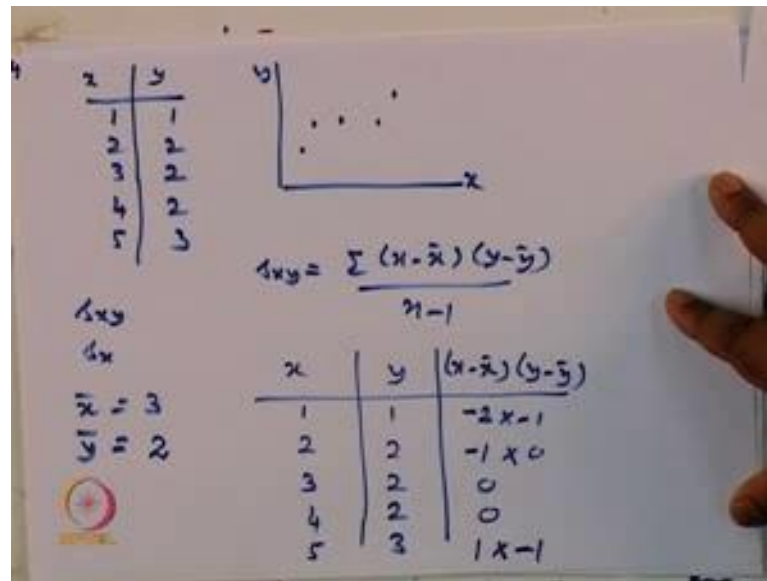 x y
1 1
2 2
3 2
4 2
5 3
y
x
sxy = Σ (x-x̄)(y-ȳ)
n-1
sxy
sx
x̄ = 3
ȳ = 2
x y (x-x̄)(y-ȳ)
1 1 -2x-1
2 2 -1x0
3 2 0
4 2 0
5 3 1x-1